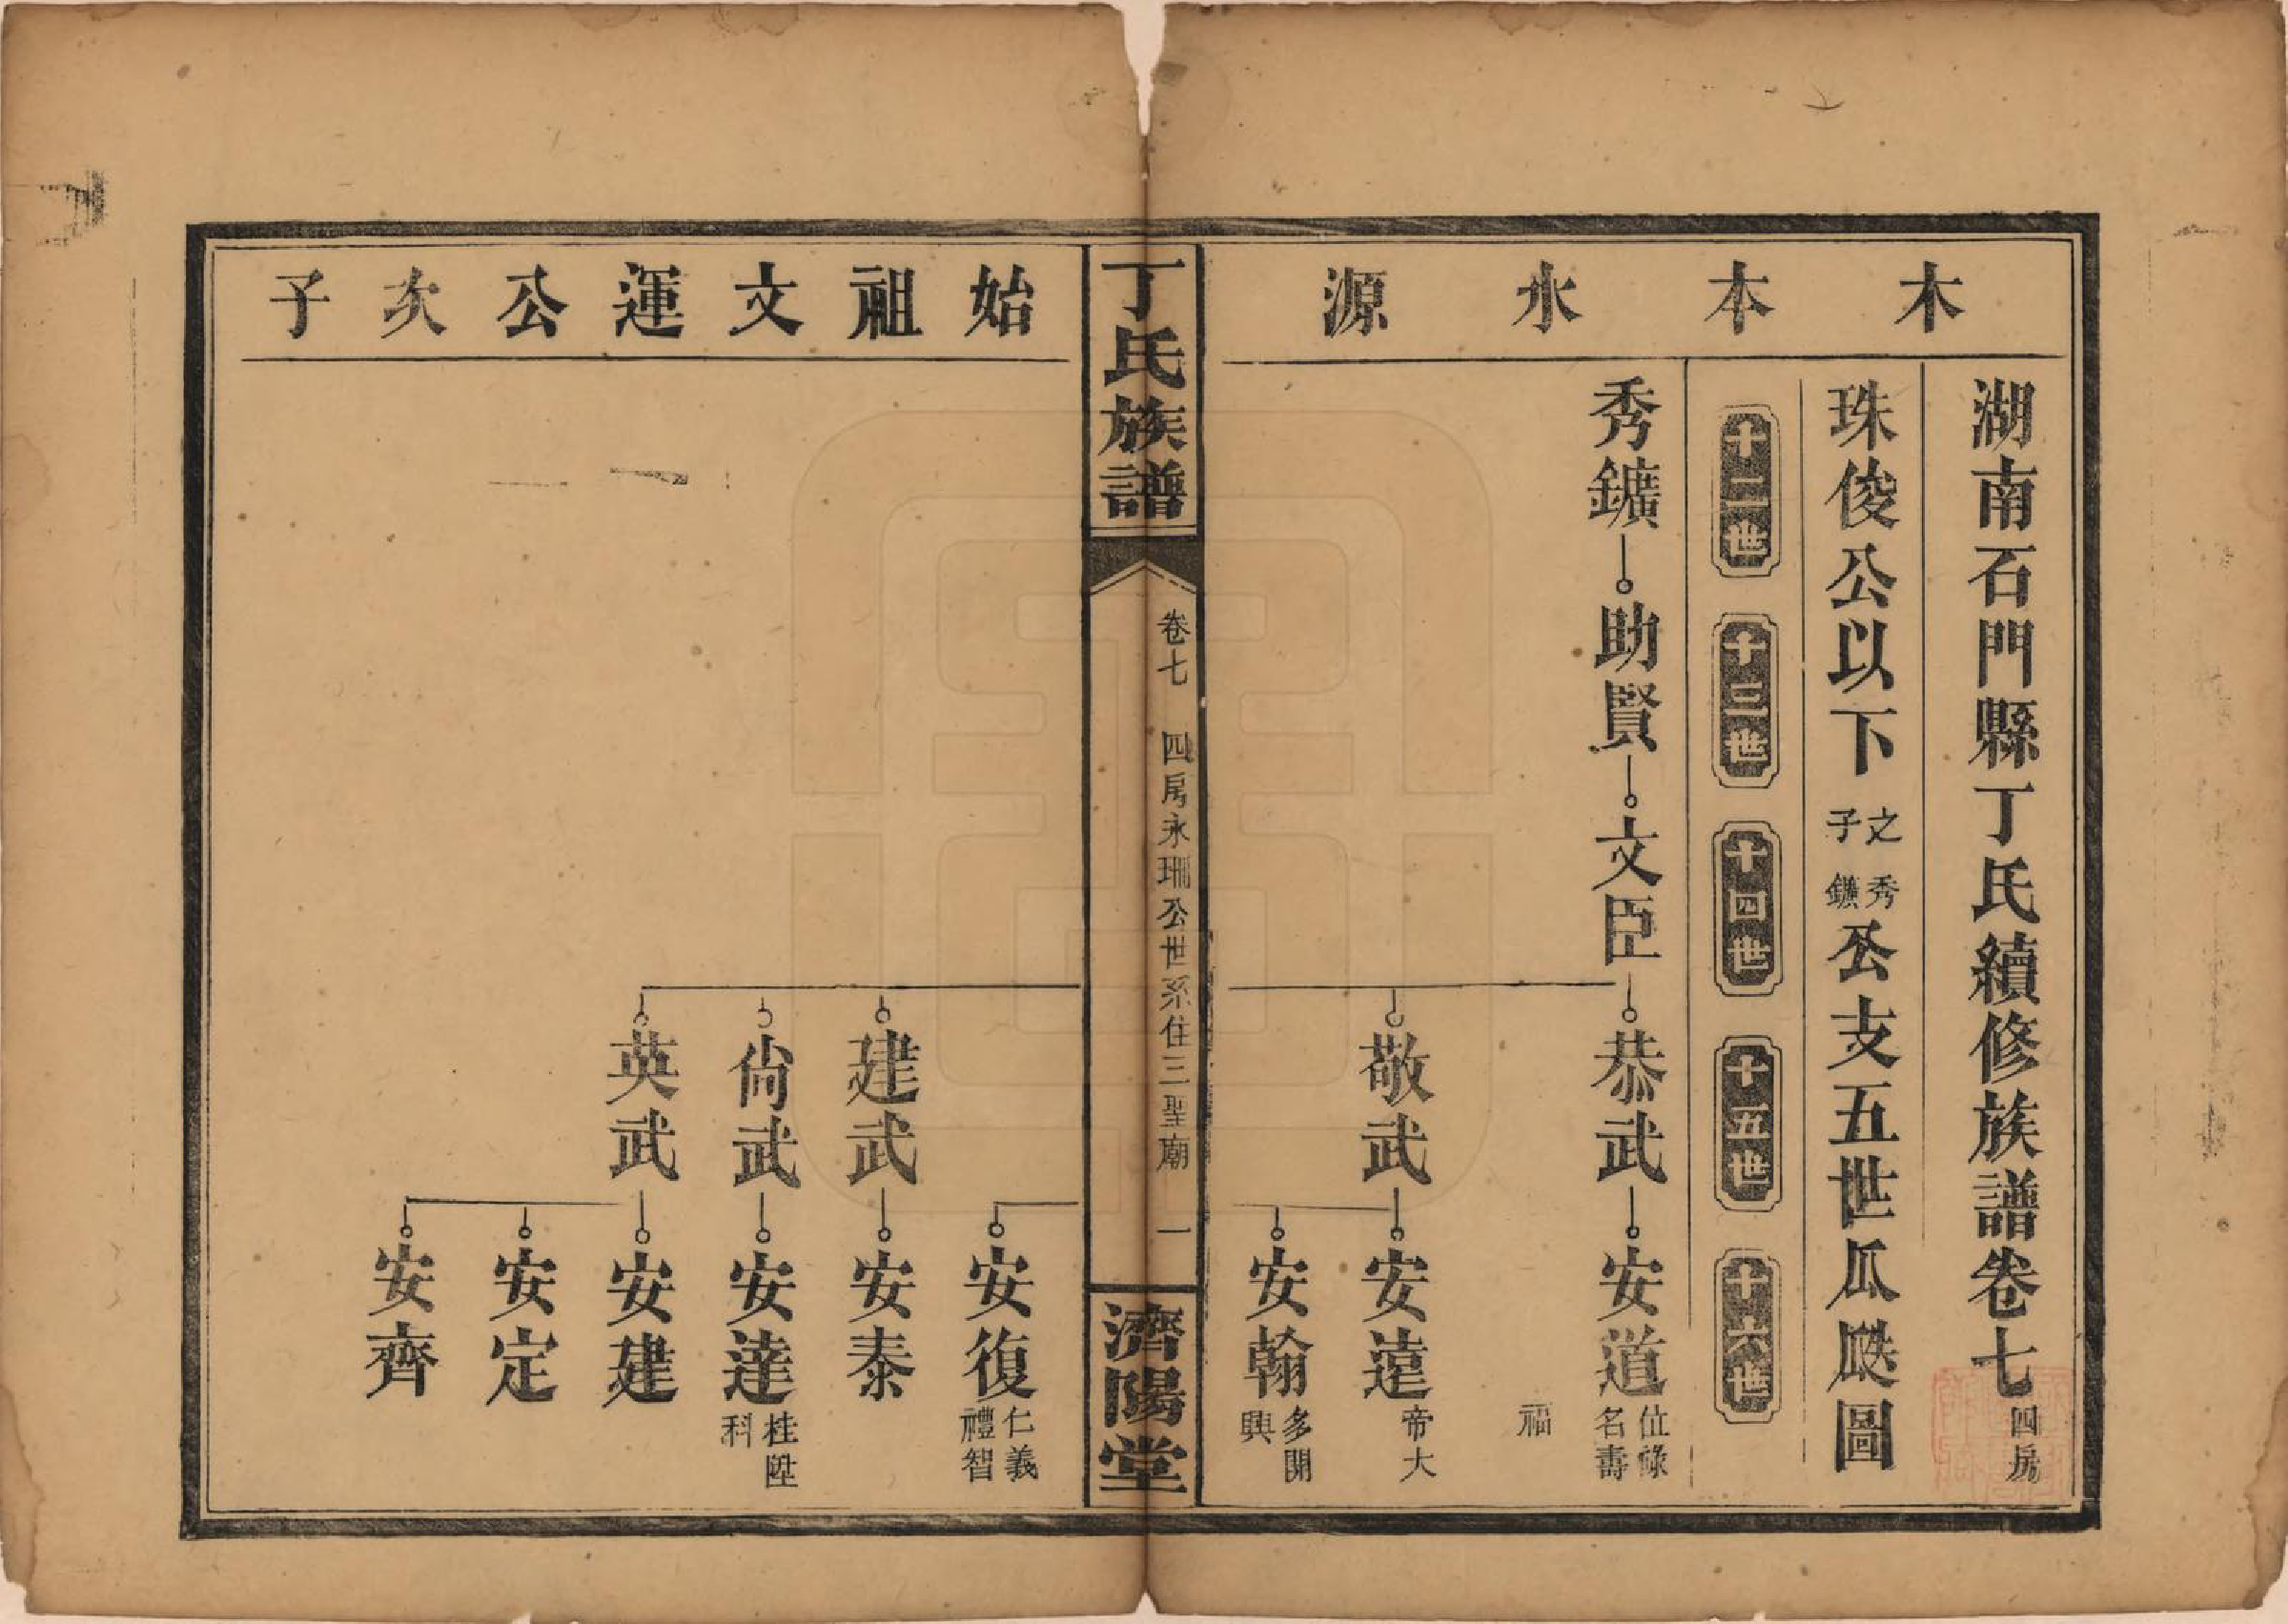 木本水源
湖南石門縣丁氏續修族譜卷七 四房
珠俊公以下之子秀鑛公支五世瓜瓞圖
十二世 十三世 十四世 十五世 十六世
秀鑛 助賢 文臣 恭武 安道 位祿名壽
福
敬武 安遠 帝大
安翰 多開興
丁氏族譜 卷七 四房永珊公世系住三聖廟 一 濟陽堂
始祖文運公次子
安復 仁義禮智
建武 安泰
尙武 安達 桂陞科
英武 安建
安定
安齊